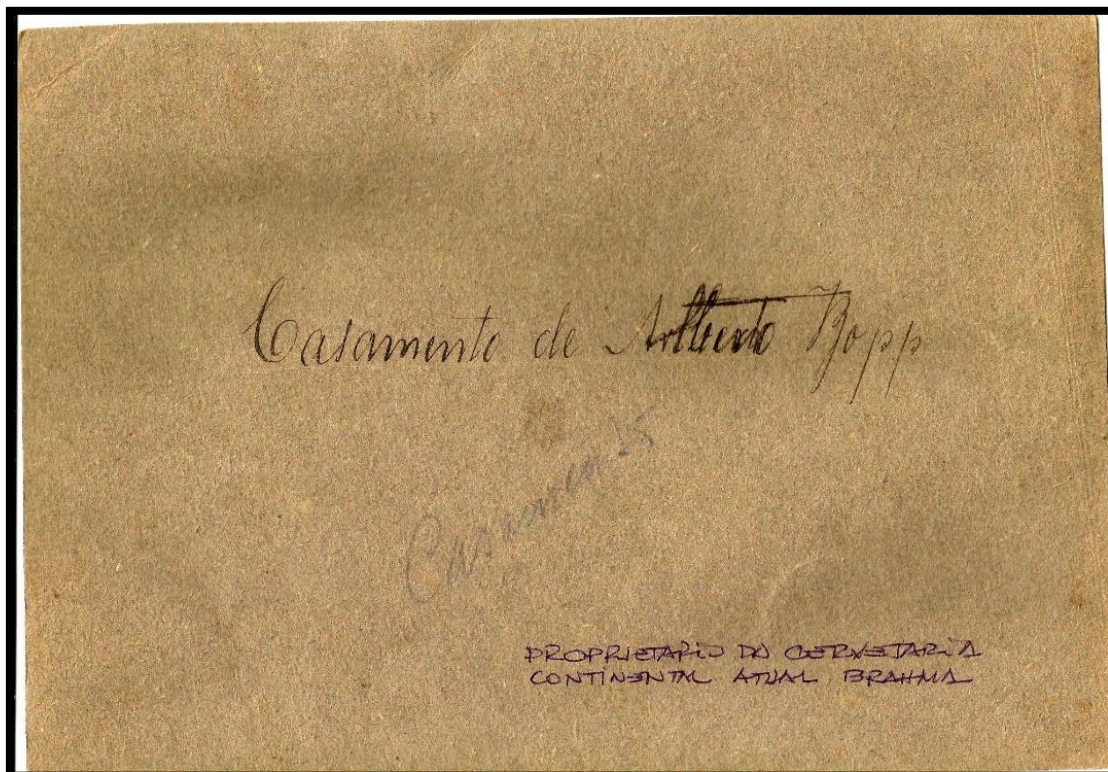 Casamento de Alberto Bopp
Casamento
PROPRIETARIO DA CERVEJARIA
CONTINENTAL ATUAL BRAHMA